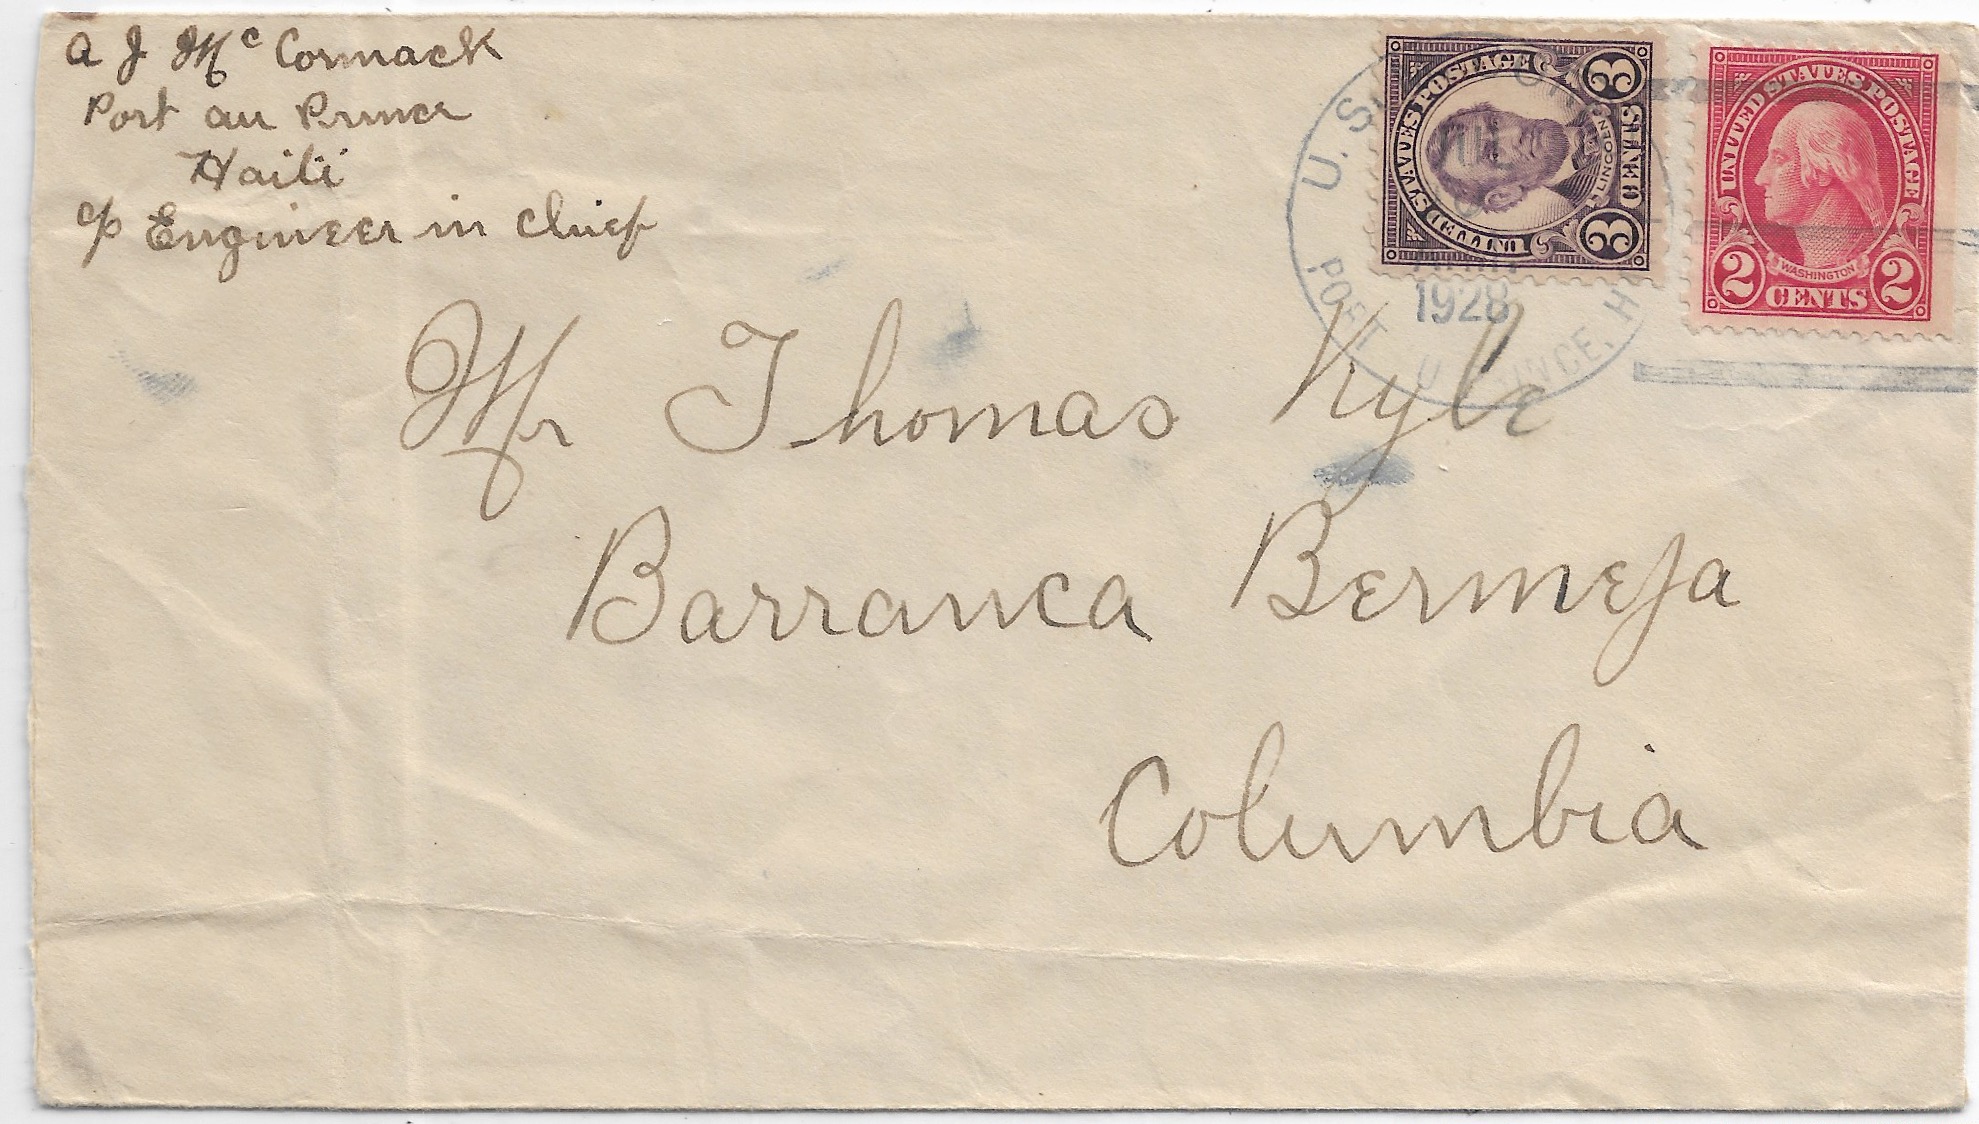 A J McCormack
Port au Prince
Haiti
c/o Engineer in chief
UNITED STATES POSTAGE
LINCOLN
3 CENTS 3
UNITED STATES POSTAGE
WASHINGTON
2 CENTS 2
U.S.
1928
PORT
Mr Thomas Kyle
Barranca Bermeja
Columbia